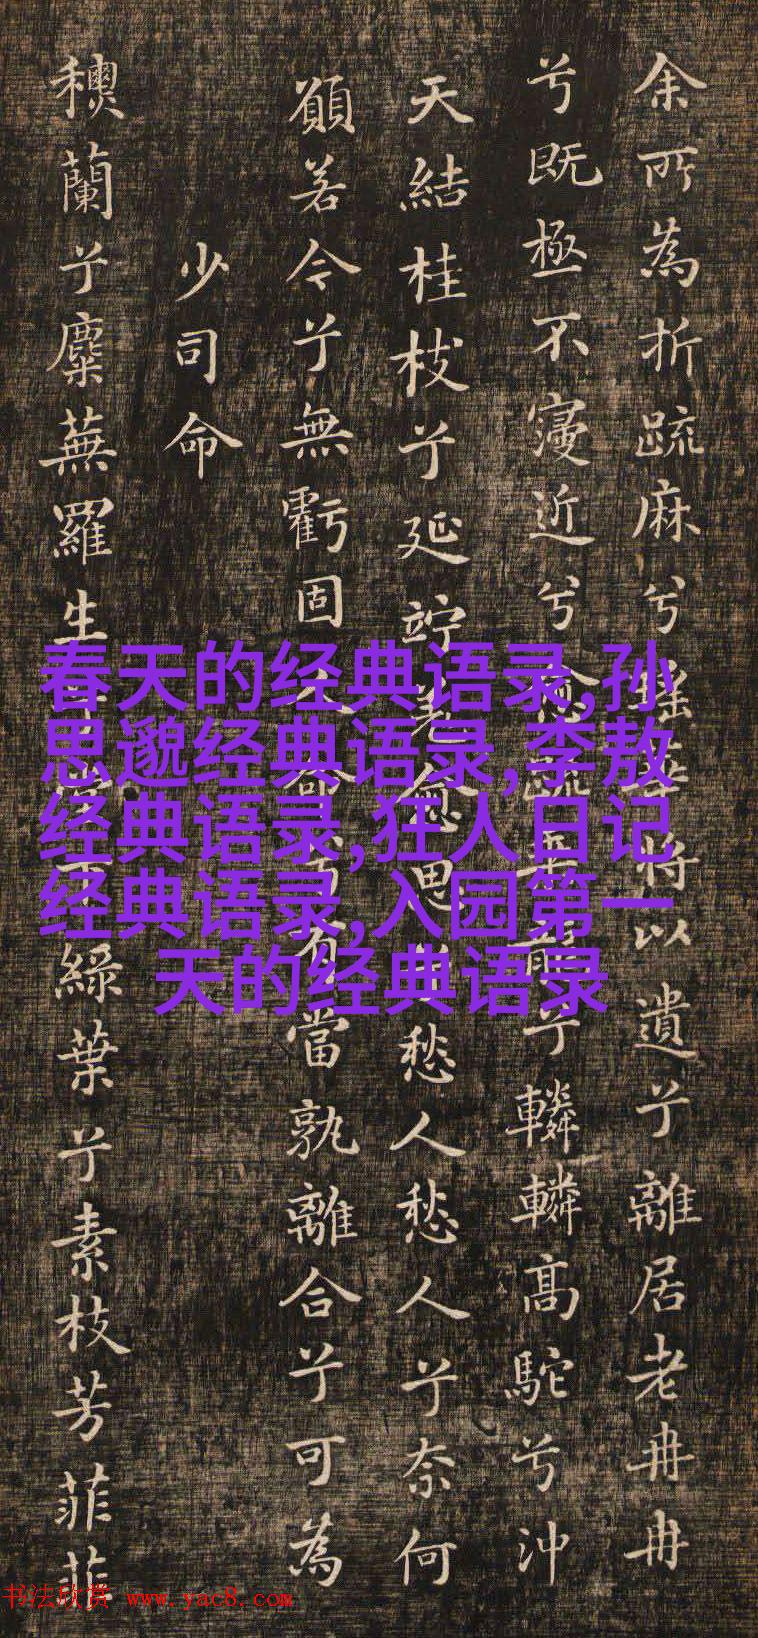 余所為折疏麻兮瑤華将以遺兮離居老冉冉
兮既極不寖近兮愈疏乗龍兮轔轔髙駝兮沖
天結桂枝兮延竚羌愈思兮愁人愁人兮奈何
願若今兮無虧固人命兮有當孰離合兮可為
少司命
穠蘭兮麋蕪羅生兮堂下綠葉兮素枝芳菲菲
春天的经典语录,孙
思邈经典语录,李敖
经典语录,狂人日记
经典语录,入园第一
天的经典语录
书法欣赏 www.yac8.com